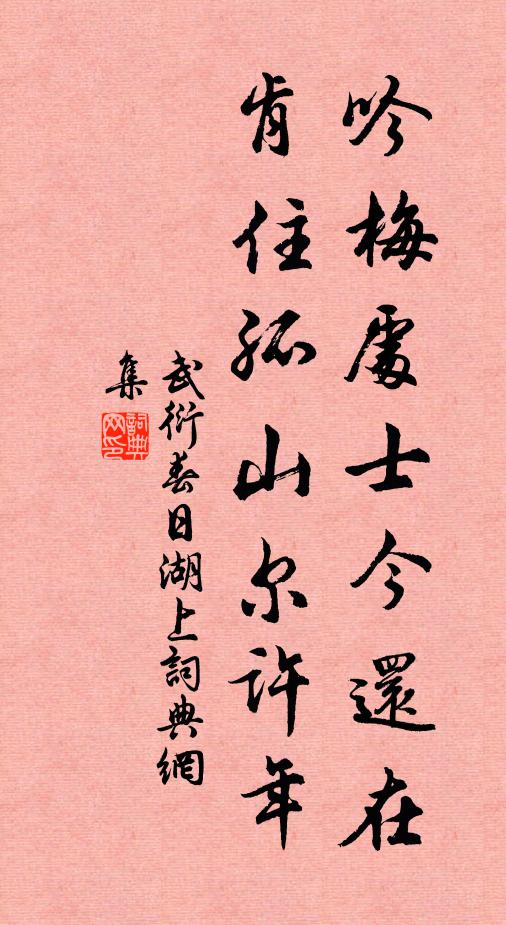 吟梅處士今還在
肯住孤山尔許年
武衍春日湖上詞典網
集
詞典网印